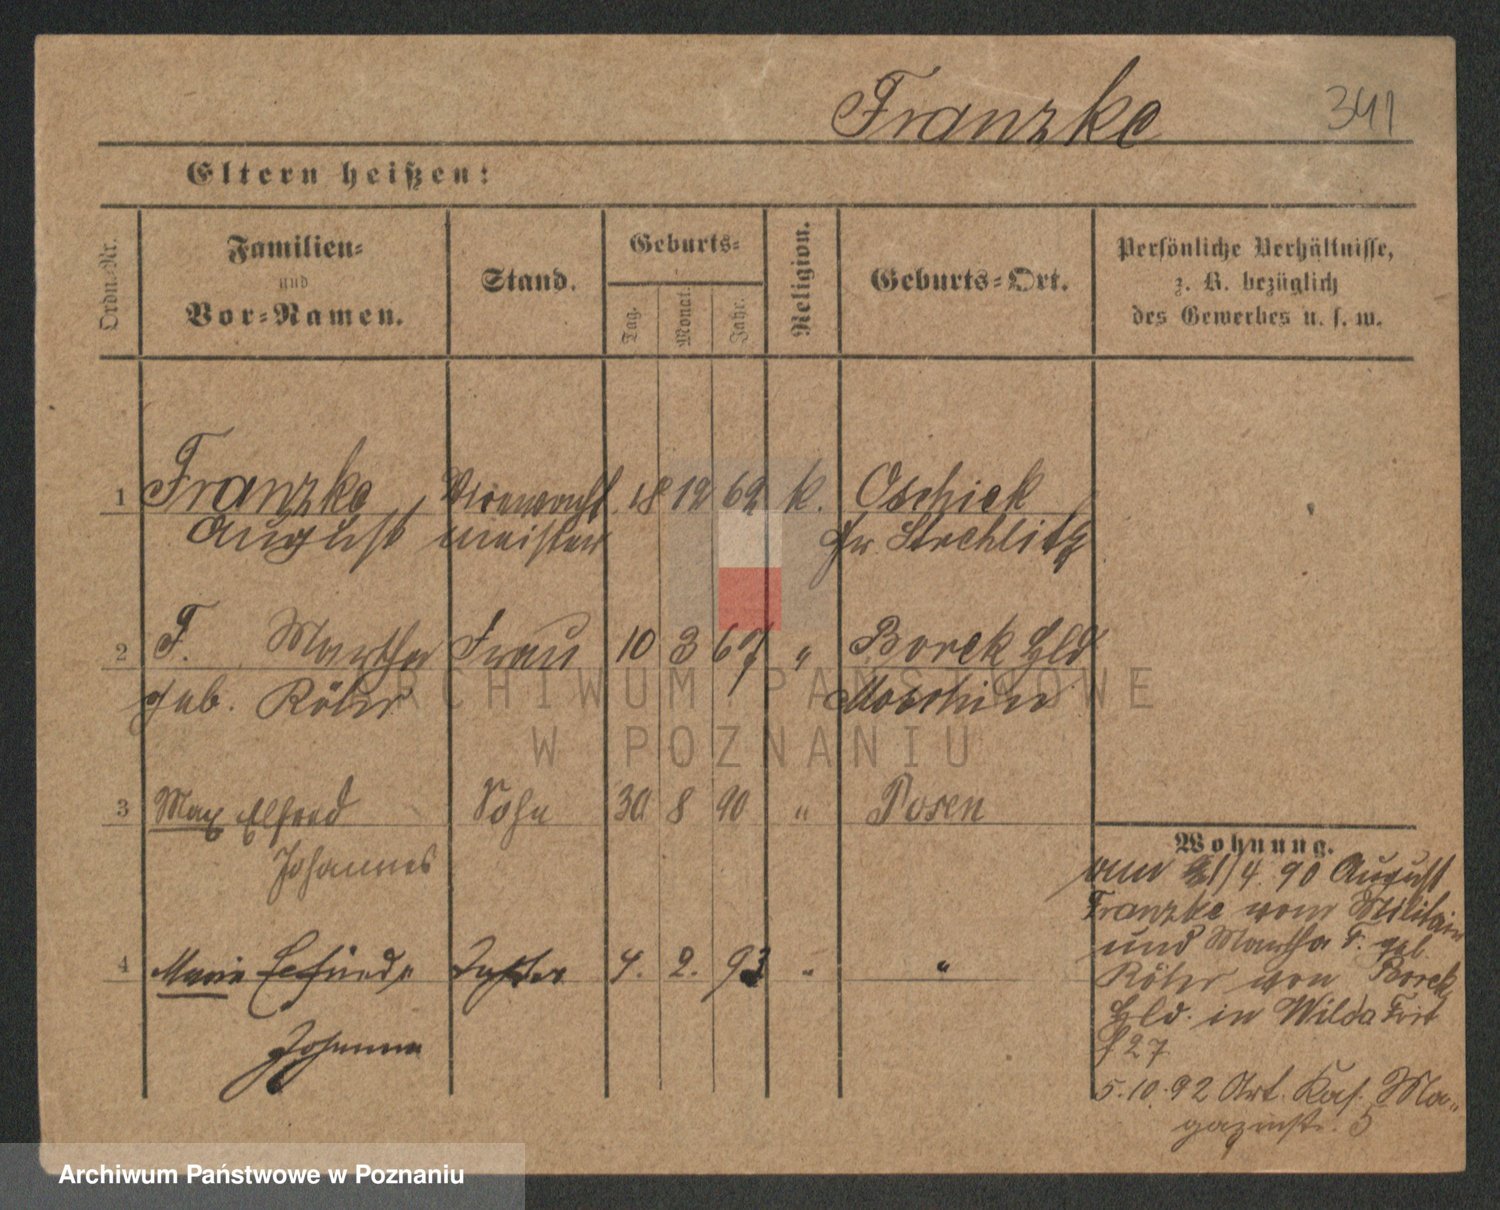 Franzke 341
Eltern heißen:
Ordn.-Nr.
Familien-
und
Vor-Namen.
Stand.
Geburts-
Tag.
Monat.
Jahr.
Religion.
Geburts-Ort.
Persönliche Verhältnisse,
z. B. bezüglich
des Gewerbes u. s. w.
1 Franzke 18 12 62 k. Oschiek
August meister Gr. Strehlitz
2 F. Martha Frau 10 3 67 " Borek Hld
geb. Röhr Moschin
3 Max Alfred Sohn 30 8 90 " Posen
Johannes
4 Marie Tochter 4. 2. 93 " "
Johanna
Wohnung.
vom 21/4. 90 August
Franzke vom Militair
und Martha F. geb.
Röhr von Borek
Hld. in Wilda Fort
f 27
5.10.92 Art. Kas. Ma-
gazinstr. 5
ARCHIWUM PAŃSTWOWE
W POZNANIU
Archiwum Państwowe w Poznaniu